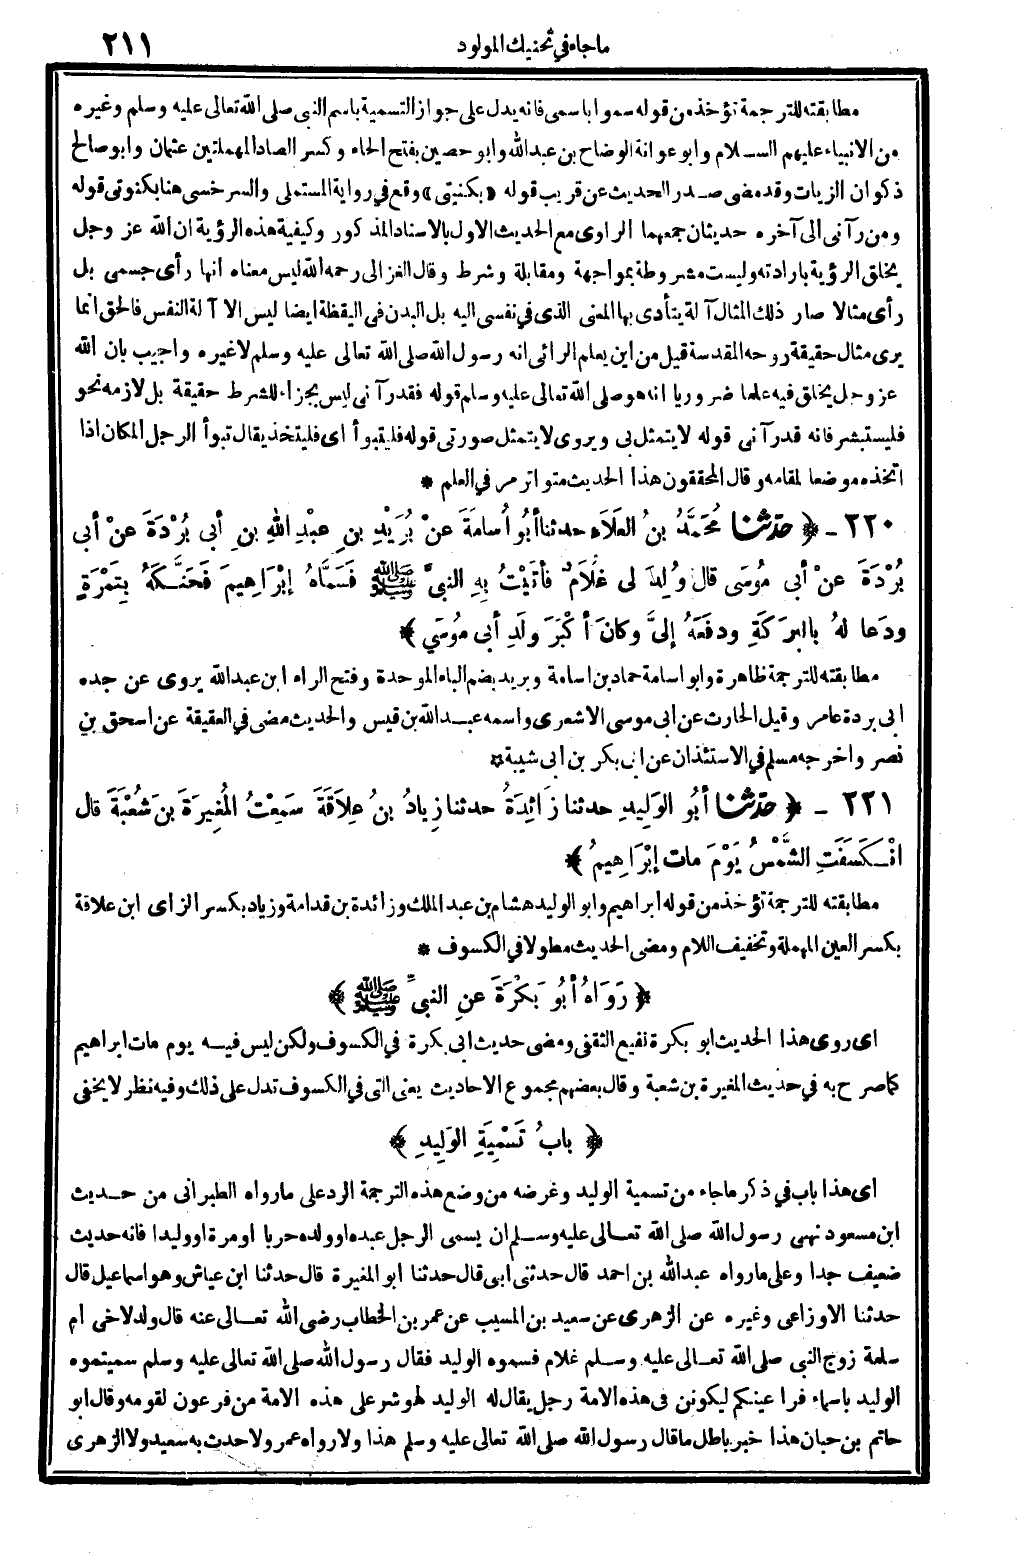 ماجاء في تحنيك المولود ٢١١
مطابقته للترجمة تؤخذ من قوله سموا باسمى فانه يدل على جواز التسمية باسم النبى صلى الله تعالى عليه وسلم وغيره
من الانبياء عليهم السلام وابو عوانة الوضاح بن عبدالله وابو حصين بفتح الحاء وكسر الصاد المهملتين عثمان وابو صالح
ذكوان الزيات وقد مضى صدر الحديث عن قريب قوله «بكنيتى» وقع في رواية المستملى والسرخسى هنا بكنوتى قوله
ومن رآنى الى آخره حديثان جمعهما الراوى مع الحديث الاول بالاسناد المذكور وكيفية هذه الرؤية ان الله عز وجل
يخلق الرؤية بارادته وليست مشروطة بمواجهة ومقابلة وشرط وقال الغزالى رحمه الله ليس معناه انها رأى جسمى بل
رأى مثالا صار ذلك المثال آلة يتأدى بها المعنى الذى في نفسى اليه بل البدن في اليقظة ايضا ليس الا آلة النفس فالحق انما
يرى مثال حقيقة روحه المقدسة قيل من اين يعلم الرائى انه رسول الله صلى الله تعالى عليه وسلم لا غيره واجيب بان الله
عز وجل يخلق فيه علما ضروريا انه هو صلى الله تعالى عليه وسلم قوله فقد رآنى ليس بجزاء للشرط حقيقة بل لازمه نحو
فليستبشر فانه قد رآنى قوله لا يتمثل بى ويروى لا يتمثل صورتى قوله فليتبوأ اى فليتخذ يقال تبوأ الرجل المكان اذا
اتخذه موضعا لمقامه وقال المحققون هذا الحديث متواتر مر في العلم *
٢٢٠ - ﴿ حدّثنا مُحَمَّدُ بنُ العَلَاءِ حدثنا أبُو أُسامَةَ عَنْ بُرَيْدِ بنِ عبْدِ اللهِ بنِ أبى بُرْدَةَ عنْ أبى
بُرْدَةَ عنْ أبى مُوسَى قال وُلِدَ لى غلَامٌ فأتَيْتُ بِهِ النبىَّ ﷺ فَسَمَّاهُ إبْرَاهِيمَ فَحَنَّكَهُ بِتَمْرَةٍ
ودَعا لهُ بالبرَكَةِ ودفَعَهُ إلىَّ وكانَ أكْبَرَ ولَدِ أبى مُوسَي ﴾
مطابقته للترجمة ظاهرة وابو اسامة حماد بن اسامة وبريد بضم الباء الموحدة وفتح الراء ابن عبدالله يروى عن جده
ابى بردة عامر وقيل الحارث عن ابى موسى الاشعرى واسمه عبدالله بن قيس والحديث مضى في العقيقة عن اسحق بن
نصر واخرجه مسلم في الاستئذان عن ابى بكر بن ابى شيبة *
٢٢١ - ﴿ حدّثنا أبُو الوَلِيدِ حدثنا زَائِدَةُ حدثنا زِيادُ بنُ عِلَاقَةَ سَمِعْتُ المُغِيرَةَ بنَ شُعْبَةَ قال
انْكَسَفَتِ الشَّمْسُ يَوْمَ مات إبْرَاهِيمُ ﴾
مطابقته للترجمة تؤخذ من قوله ابراهيم وابو الوليد هشام بن عبد الملك وزائدة بن قدامة وزياد بكسر الزاى ابن علاقة
بكسر العين المهملة وتخفيف اللام ومضى الحديث مطولا في الكسوف *
﴿ رَوَاهُ أبُو بَكْرَةَ عنِ النبىِّ ﷺ ﴾
اى روى هذا الحديث ابو بكرة نفيع الثقفى ومضى حديث ابى بكرة في الكسوف ولكن ليس فيه يوم مات ابراهيم
كما صرح به في حديث المغيرة بن شعبة وقال بعضهم مجموع الاحاديث يعنى التى في الكسوف تدل على ذلك وفيه نظر لا يخفى
﴿ بابُ تَسْمِيَةِ الوَلِيدِ ﴾
اى هذا باب في ذكر ماجاء من تسمية الوليد وغرضه من وضع هذه الترجمة الرد على مارواه الطبرانى من حديث
ابن مسعود نهى رسول الله صلى الله تعالى عليه وسلم ان يسمى الرجل عبده او ولده حربا او مرة او وليدا فانه حديث
ضعيف جدا وعلى مارواه عبدالله بن احمد قال حدثنى ابى قال حدثنا ابو المغيرة قال حدثنا ابن عياش وهو اسماعيل قال
حدثنا الاوزاعى وغيره عن الزهرى عن سعيد بن المسيب عن عمر بن الخطاب رضى الله تعالى عنه قال ولد لاخى ام
سلمة زوج النبى صلى الله تعالى عليه وسلم غلام فسموه الوليد فقال رسول الله صلى الله تعالى عليه وسلم سميتموه
الوليد باسماء فراعينكم ليكونن في هذه الامة رجل يقال له الوليد لهو شر على هذه الامة من فرعون لقومه وقال ابو
حاتم بن حبان هذا خبر باطل ما قال رسول الله صلى الله تعالى عليه وسلم هذا ولا رواه عمر ولا حدث به سعيد ولا الزهرى